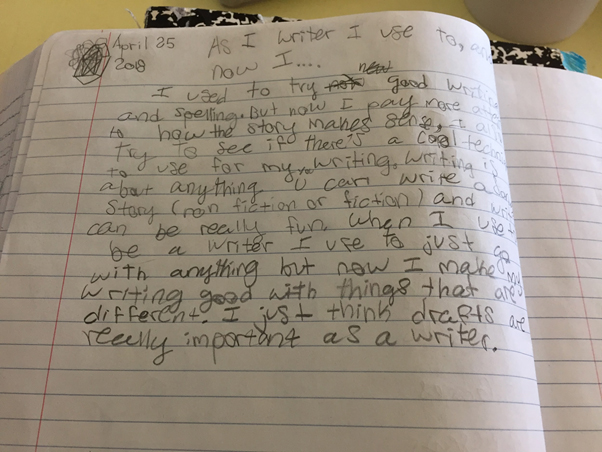 April 25 As I writer I use to, an
2018 now I....
new
I used to try good writi
and spelling. But now I pay more atte
to how the story makes sense. I als
try to see if there's a cool techni
to use for my writing. Writing is
about anything U can write a
story (non fiction or fiction) and wri
can be really fun. When I use t
be a writer I use to just go
with anything but now I make my
writing good with things that are
different. I just think drafts are
really important as a writer.